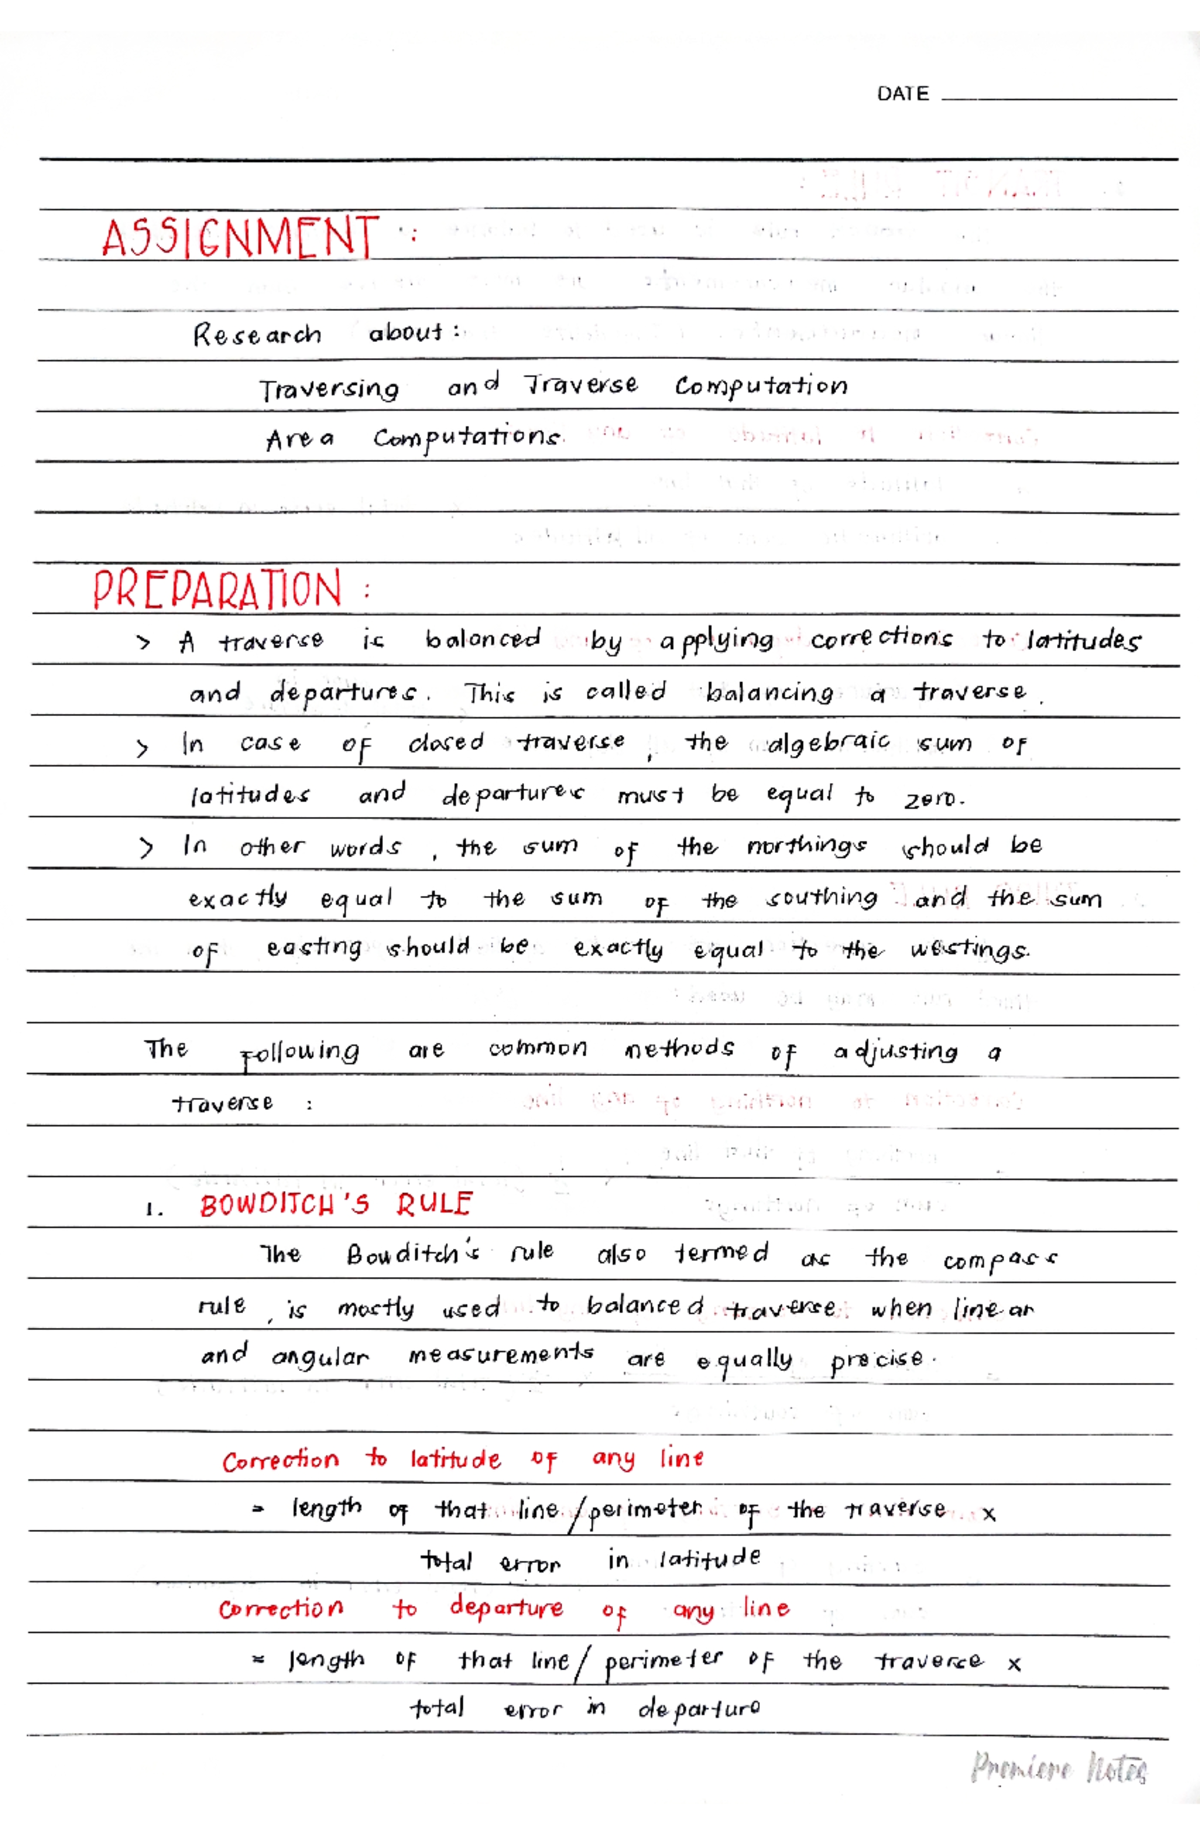 DATE
ASSIGNMENT :
Research about:
Traversing and Traverse Computation
Area Computations.
PREPARATION :
> A traverse is balanced by applying corrections to latitudes
and departures. This is called balancing a traverse.
> In case of closed traverse, the algebraic sum of
latitudes and departures must be equal to zero.
> In other words, the sum of the northings should be
exactly equal to the sum of the southing and the sum
of easting should be exactly equal to the westings.
The following are common methods of adjusting a
traverse :
1. BOWDITCH'S RULE
The Bowditch's rule also termed as the compass
rule, is mostly used to balanced traverse when linear
and angular measurements are equally precise.
Correction to latitude of any line
= length of that line/perimeter of the traverse x
total error in latitude
Correction to departure of any line
= length of that line/ perimeter of the traverse x
total error in departure
Premiere Notes